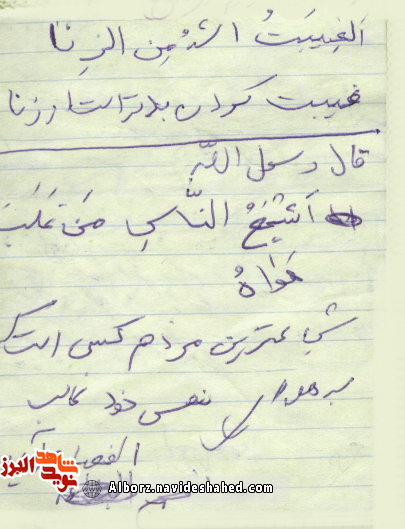 اَلغیبَتُ اشدُ مِن الزِنا
غیبت کردن بدتر است از زنا
قال رسول اللّه
اَشْجَعُ النّاسِ مَن غَلَبَ
هَواهُ
شجاعترین مردم کسی است که
بر هوای نفس خود غالب
شاهد
نوید
البرز
Alborz.navideshahed.com